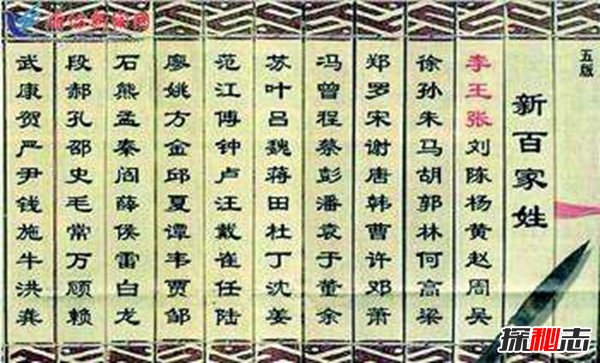 五版
新百家姓
李王张刘陈杨黄赵周吴
徐孙朱马胡郭林何高梁
郑罗宋谢唐韩曹许邓萧
冯曾程蔡彭潘袁于董余
苏叶吕魏蒋田杜丁沈姜
范江傅钟卢汪戴崔任陆
廖姚方金邱夏谭韦贾邹
石熊孟秦阎薛侯雷白龙
段郝孔邵史毛常万顾赖
武康贺严尹钱施牛洪龚
探秘志